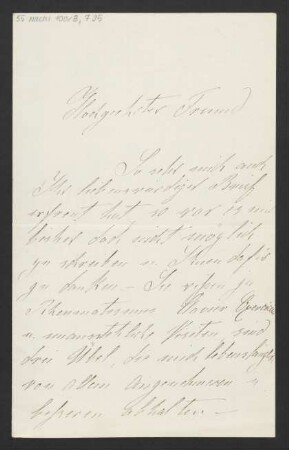 55 Nachl 100/B, 735
Hochgeehrter Freund
So sehr mich auch
Ihr liebenswürdiger Brief
erfreut hat, so war es mir
bisher doch nicht möglich
zu schreiben u. Ihnen dafür
zu danken – Sie wissen ja
Rheumatismus Clavier
u. unausstehliche sind
drei Übel, die mich lebenslänglich
von allem Angenehmen u
besseren abhalten –